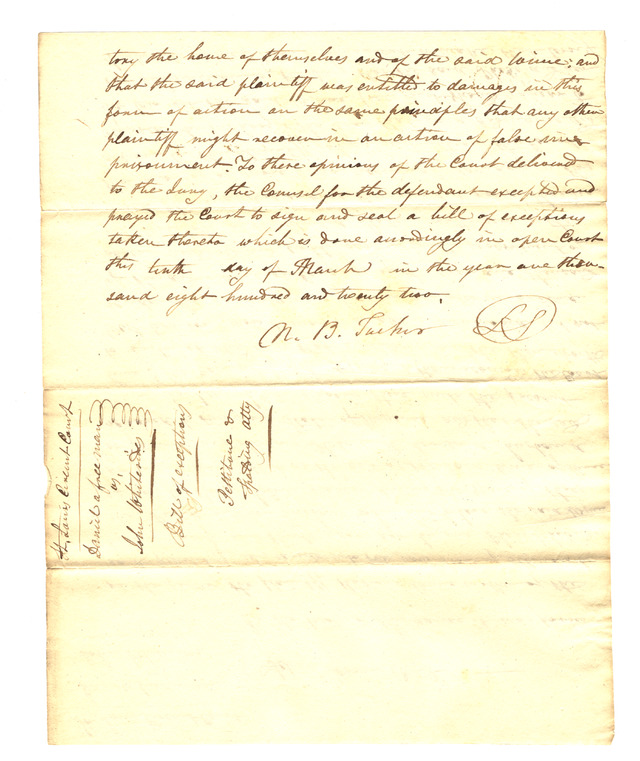 tory the home of themselves and of the said Winne; and
that the said plaintiff was entitled to damages in this
form of action on the same principles that any other
plaintiff might recover in an action of false im-
prisonment. To these opinions of the Court delivered
to the Jury, the Counsel for the defendant excepted and
prayed the Court to sign and seal a bill of exceptions
taken thereto which is done accordingly in open Court
this tenth day of March in the year one thou-
sand eight hundred and twenty two.
N. B. Tucker LS
St. Louis Circuit Court
Daniel a free man
vs
John
Bill of exceptions
Pettibone &
Spalding atty